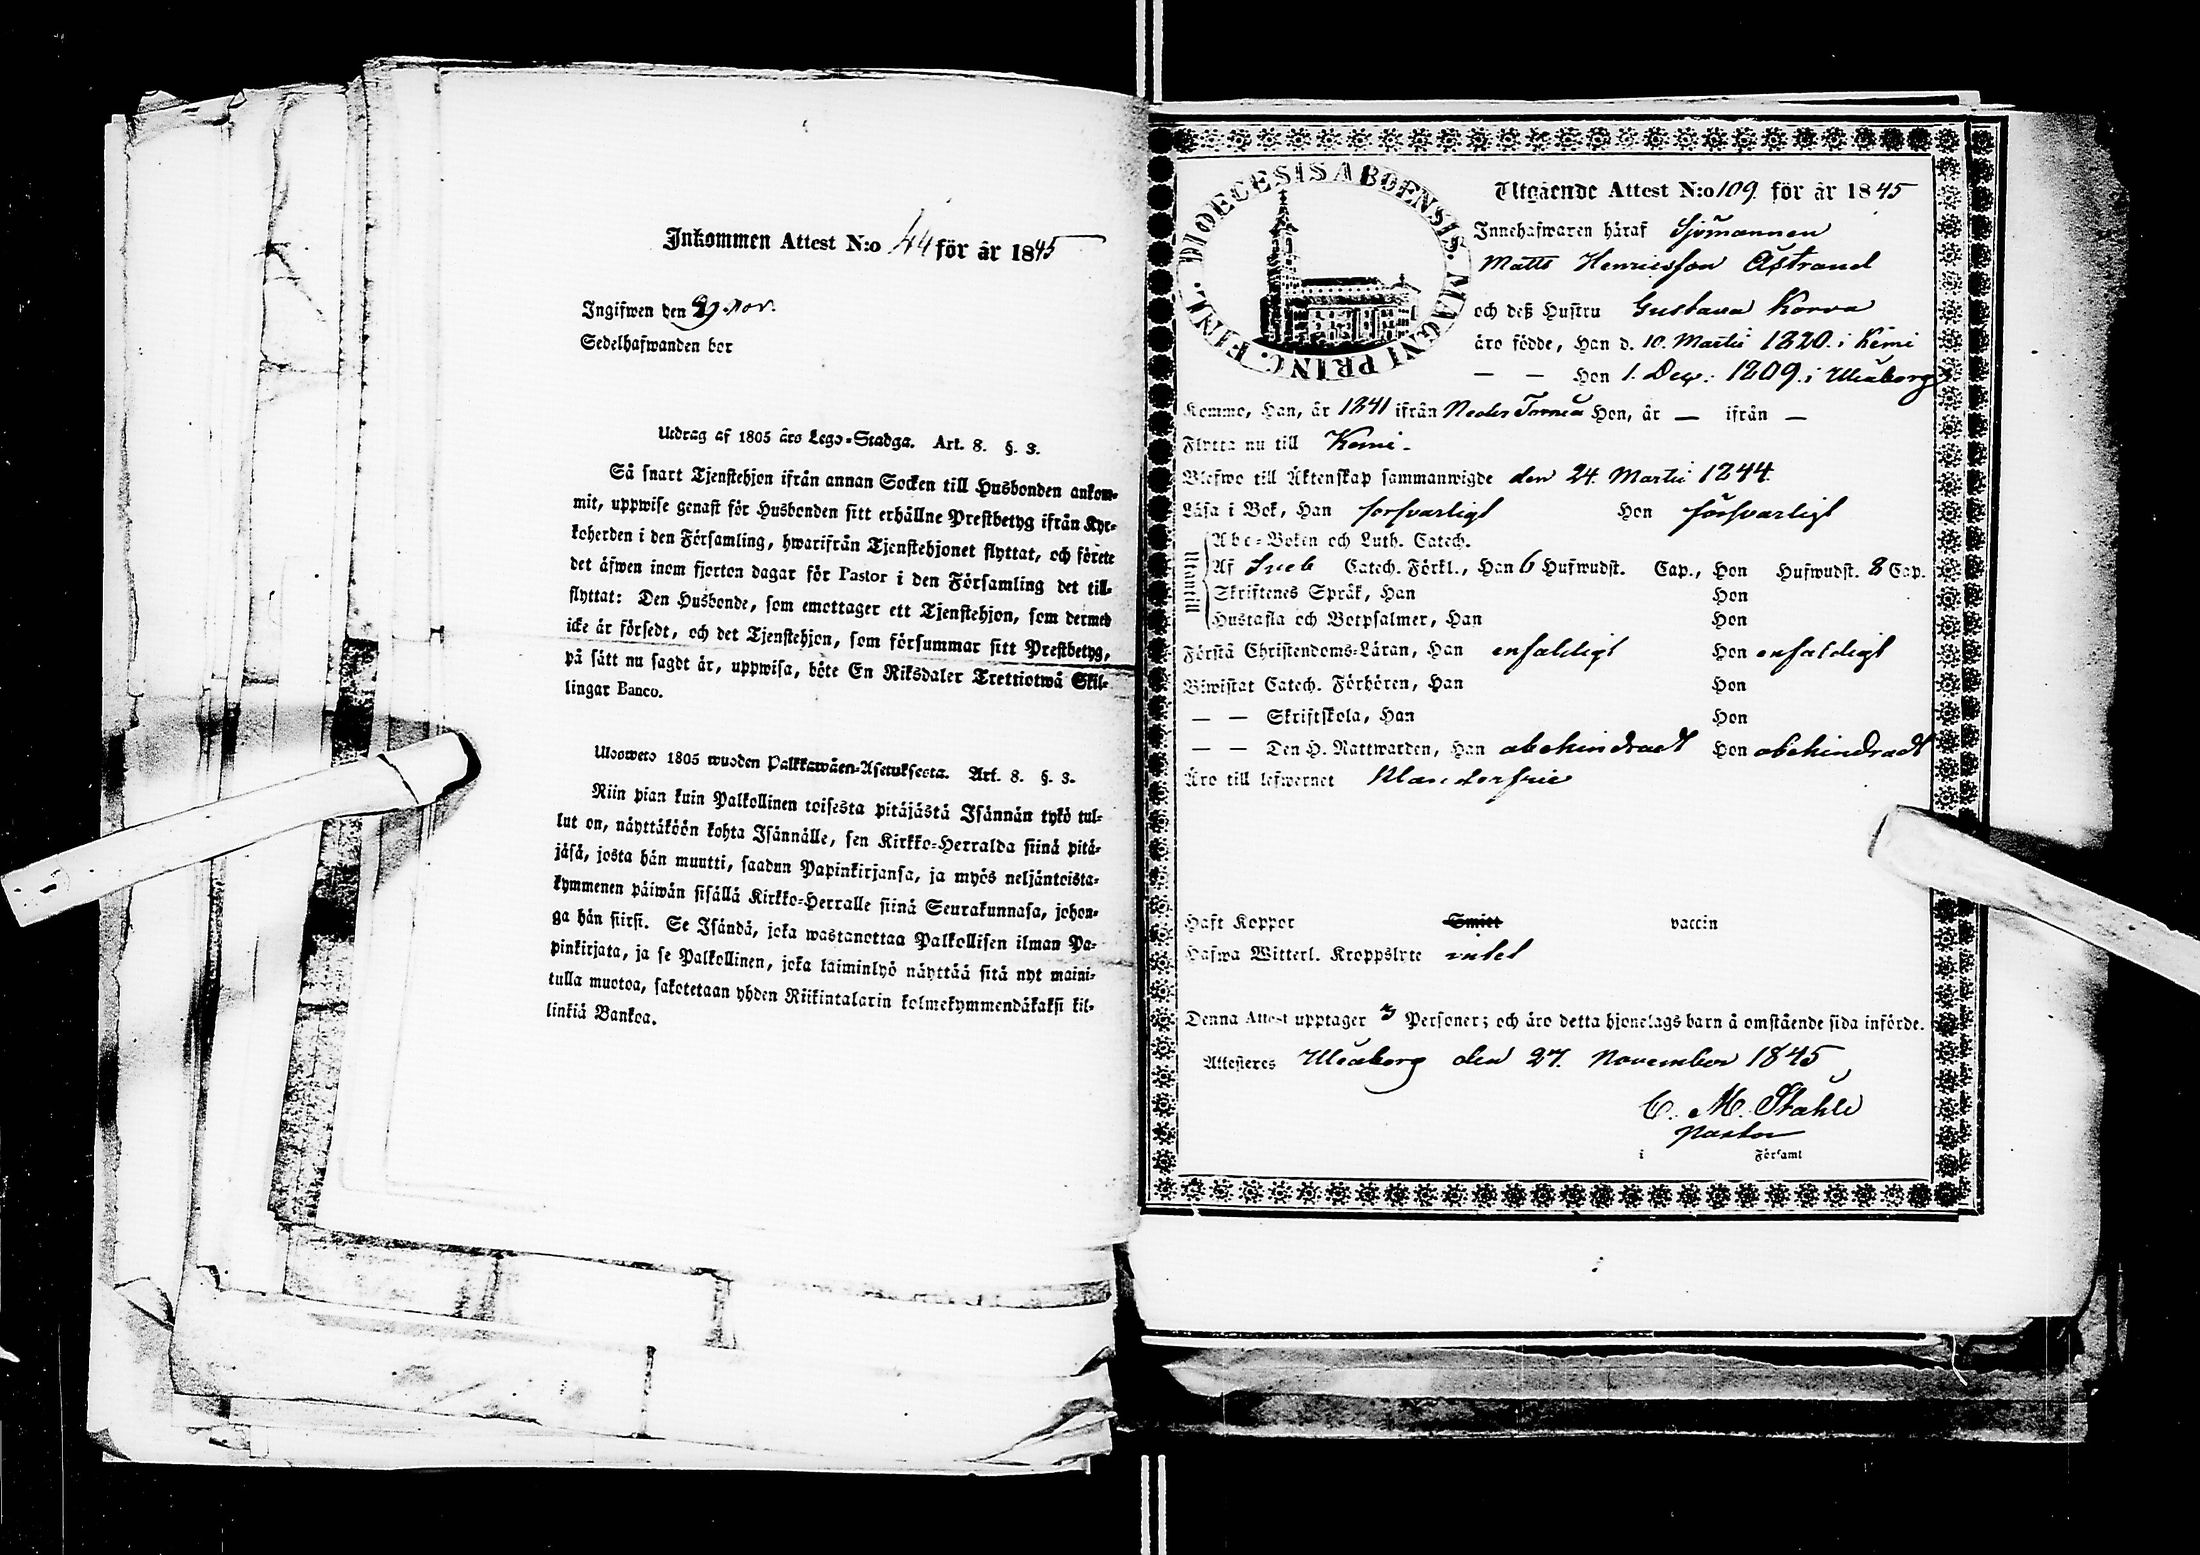 Inkommen Attest N:o 44 för år 1845
Ingifwen den 29 Nov.
Sedelhafwanden bor
Utdrag af 1805 års Lego-Stadga. Art. 8. §. 3.
Så snart Tjenstehjon ifrån annan Socken till Husbonden ankom-
mit, uppwise genast för Husbonden sitt erhållne Prestbetyg ifrån Kyr-
koherden i den Församling, hwarifrån Tjenstehjonet flyttat, och förete
det äfwen inom fjorton dagar för Pastor i den Församling det till-
flyttat: Den Husbonde, som emottager ett Tjenstehjon, som dermed
icke är försedt, och det Tjenstehjon, som försummar sitt Prestbetyg,
på sätt nu sagdt är, uppwisa, böte En Riksdaler Trettiotwå Skil-
lingar Banco.
Ulosweto 1805 wuoden Palkkawäen-Asetuksesta. Art. 8. §. 3.
Niin pian kuin Palkollinen toisesta pitäjästä Isännän tykö tul-
lut on, näyttäköön kohta Isännälle, sen Kirkko-Herralda siinä pitä-
jäsä, josta hän muutti, saadun Papinkirjansa, ja myös neljäntoista-
kymmenen päiwän sisällä Kirkko-Herralle siinä Seurakunnasa, johon-
ga hän siirsi. Se Isändä, joka wastanottaa Palkollisen ilman Pa-
pinkirjata, ja se Palkollinen, joka laiminlyö näyttää sitä nyt maini-
tulla muotoa, sakotetaan yhden Riikintalarin kolmekymmendäkaksi kil-
linkiä Bankoa.
DIOECESIS ABOENSIS. MAGNI PRINC. FINL.
Utgående Attest N:o 109. för år 1845
Innehafwaren häraf Sjömannen
Matts Henricsson Åstrand
och deß Hustru Gustava Korva
äro födde, Han d. 10. Martii 1820. i Kemi
— — Hon 1. Dec: 1809. i Uleåborg
Komne, Han, år 1841 ifrån Neder Torneå Hon, år — ifrån —
Flytta nu till Kemi.
Blefwo till Äktenskap sammanwigde den 24. Martii 1844.
Läsa i Bok, Han försvarligt Hon försvarligt
Utantill
Abc-Boken och Luth. Catech.
Af Sveb Catech. Förkl., Han 6 Hufwudst. Cap., Hon Hufwudst. 8 Cap.
Skriftenes Språk, Han Hon
Hustafla och Botpsalmer, Han Hon
Förstå Christendoms-Läran, Han enfaldigt Hon enfaldigt
Biwistat Catech. Förhören, Han Hon
— — Skriftskola, Han Hon
— — Den H. Nattwarden, Han obehindradt Hon obehindradt
Äro till lefwernet klanderfrie
Haft Koppor Smitt vaccin
Hafwa Witterl. Kroppslyte intet
Denna Attest upptager 3 Personer; och äro detta hjonelags barn å omstående sida införde.
Attesteres Uleåborg den 27. November 1845
C. M. Ståhle
Pastor
i Församl